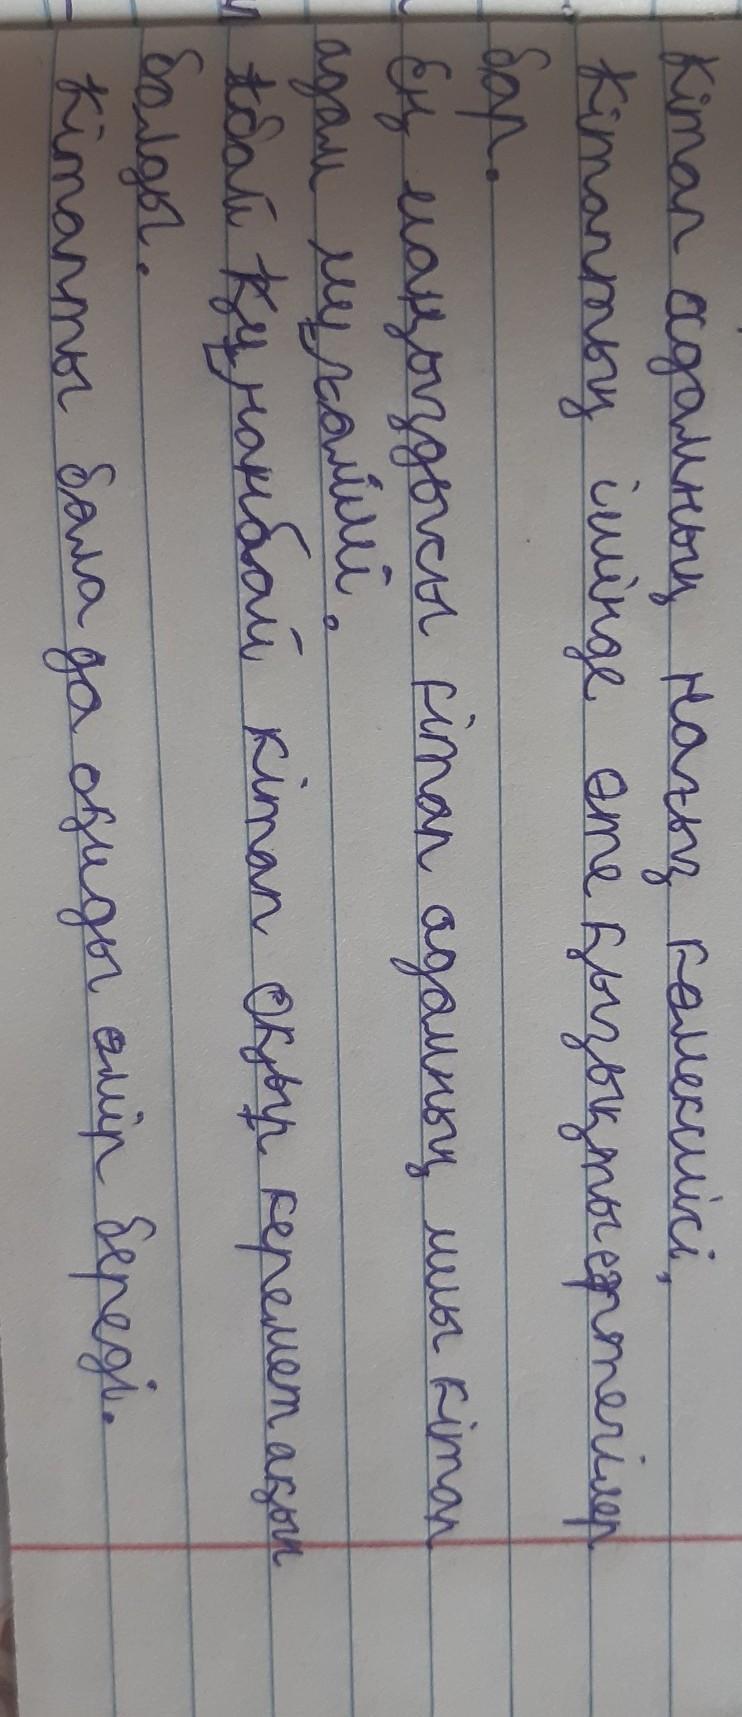 Кітап адамның нағыз көмекшісі,
Кітаптың ішінде өте қызықты ертегілер
бар.
Ең маңыздысы кітап адамның миы кітап
адам мұғалімі.
Абай Құнанбай кітап оқып керемет ақын
болды.
Кітапты бала да оқиды өмір береді.